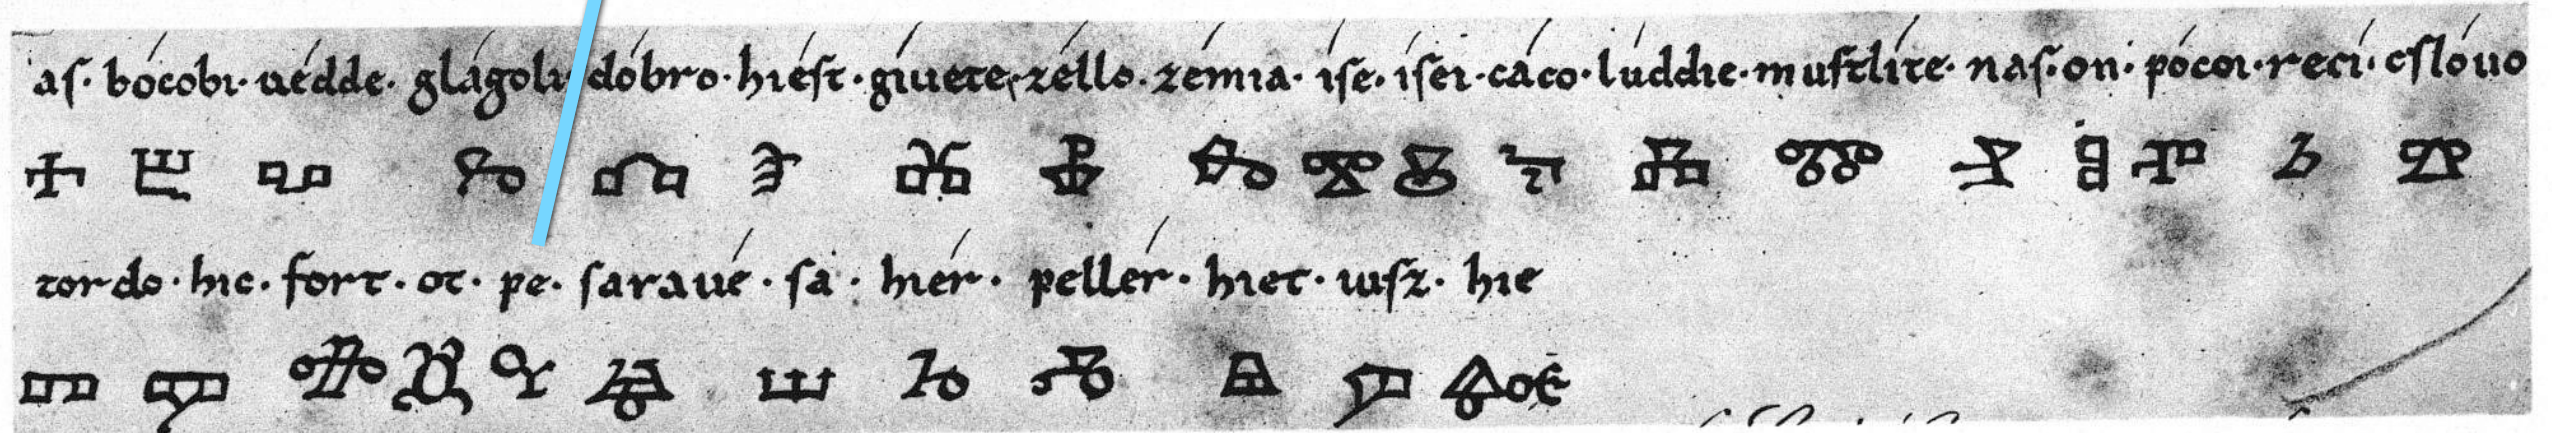 aſ· bócobi· uédde· glágoli· dóbro· hiéſt· gíuete· zéllo· zémia· íſe· íſei· cáco· lúddie· muſtlíte· naſ· on· pócoi· recí· cſlóuo
Ⰰ Ⰱ Ⰲ Ⰳ Ⰴ Ⰵ Ⰶ Ⰷ Ⰸ Ⰹ Ⰻ Ⰽ Ⰾ Ⰿ Ⱀ Ⱁ Ⱂ Ⱃ Ⱄ
tordo· hic· fort· ot· pe· ſaraué· ſa· hiér· pellér· hiet· uıſz· hie
Ⱅ Ⱇ Ⱎ Ⱑ